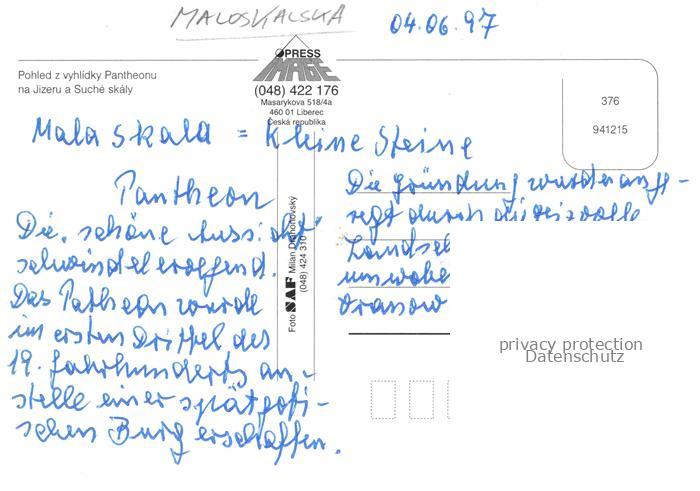 MALOSKALSKÁ
04.06.97
Pohled z vyhlídky Pantheonu
na Jizeru a Suché skály
PRESS
IMAGE
(048) 422 176
Masarykova 518/4a
460 01 Liberec
Česká republika
376
941215
Mala Skala = Kleine Steine
Pantheon
Die schöne Aussicht
schwindelerregend.
Das Patheon wurde
im ersten Drittel des
19. Jahrhunderts an-
stelle einer spätgoti-
schen Burg erschaffen.
Die Gründung wurde ange-
regt durch die reizvolle
Foto SAF Milan Drahoňovský
(048) 424 310
privacy protection
Datenschutz